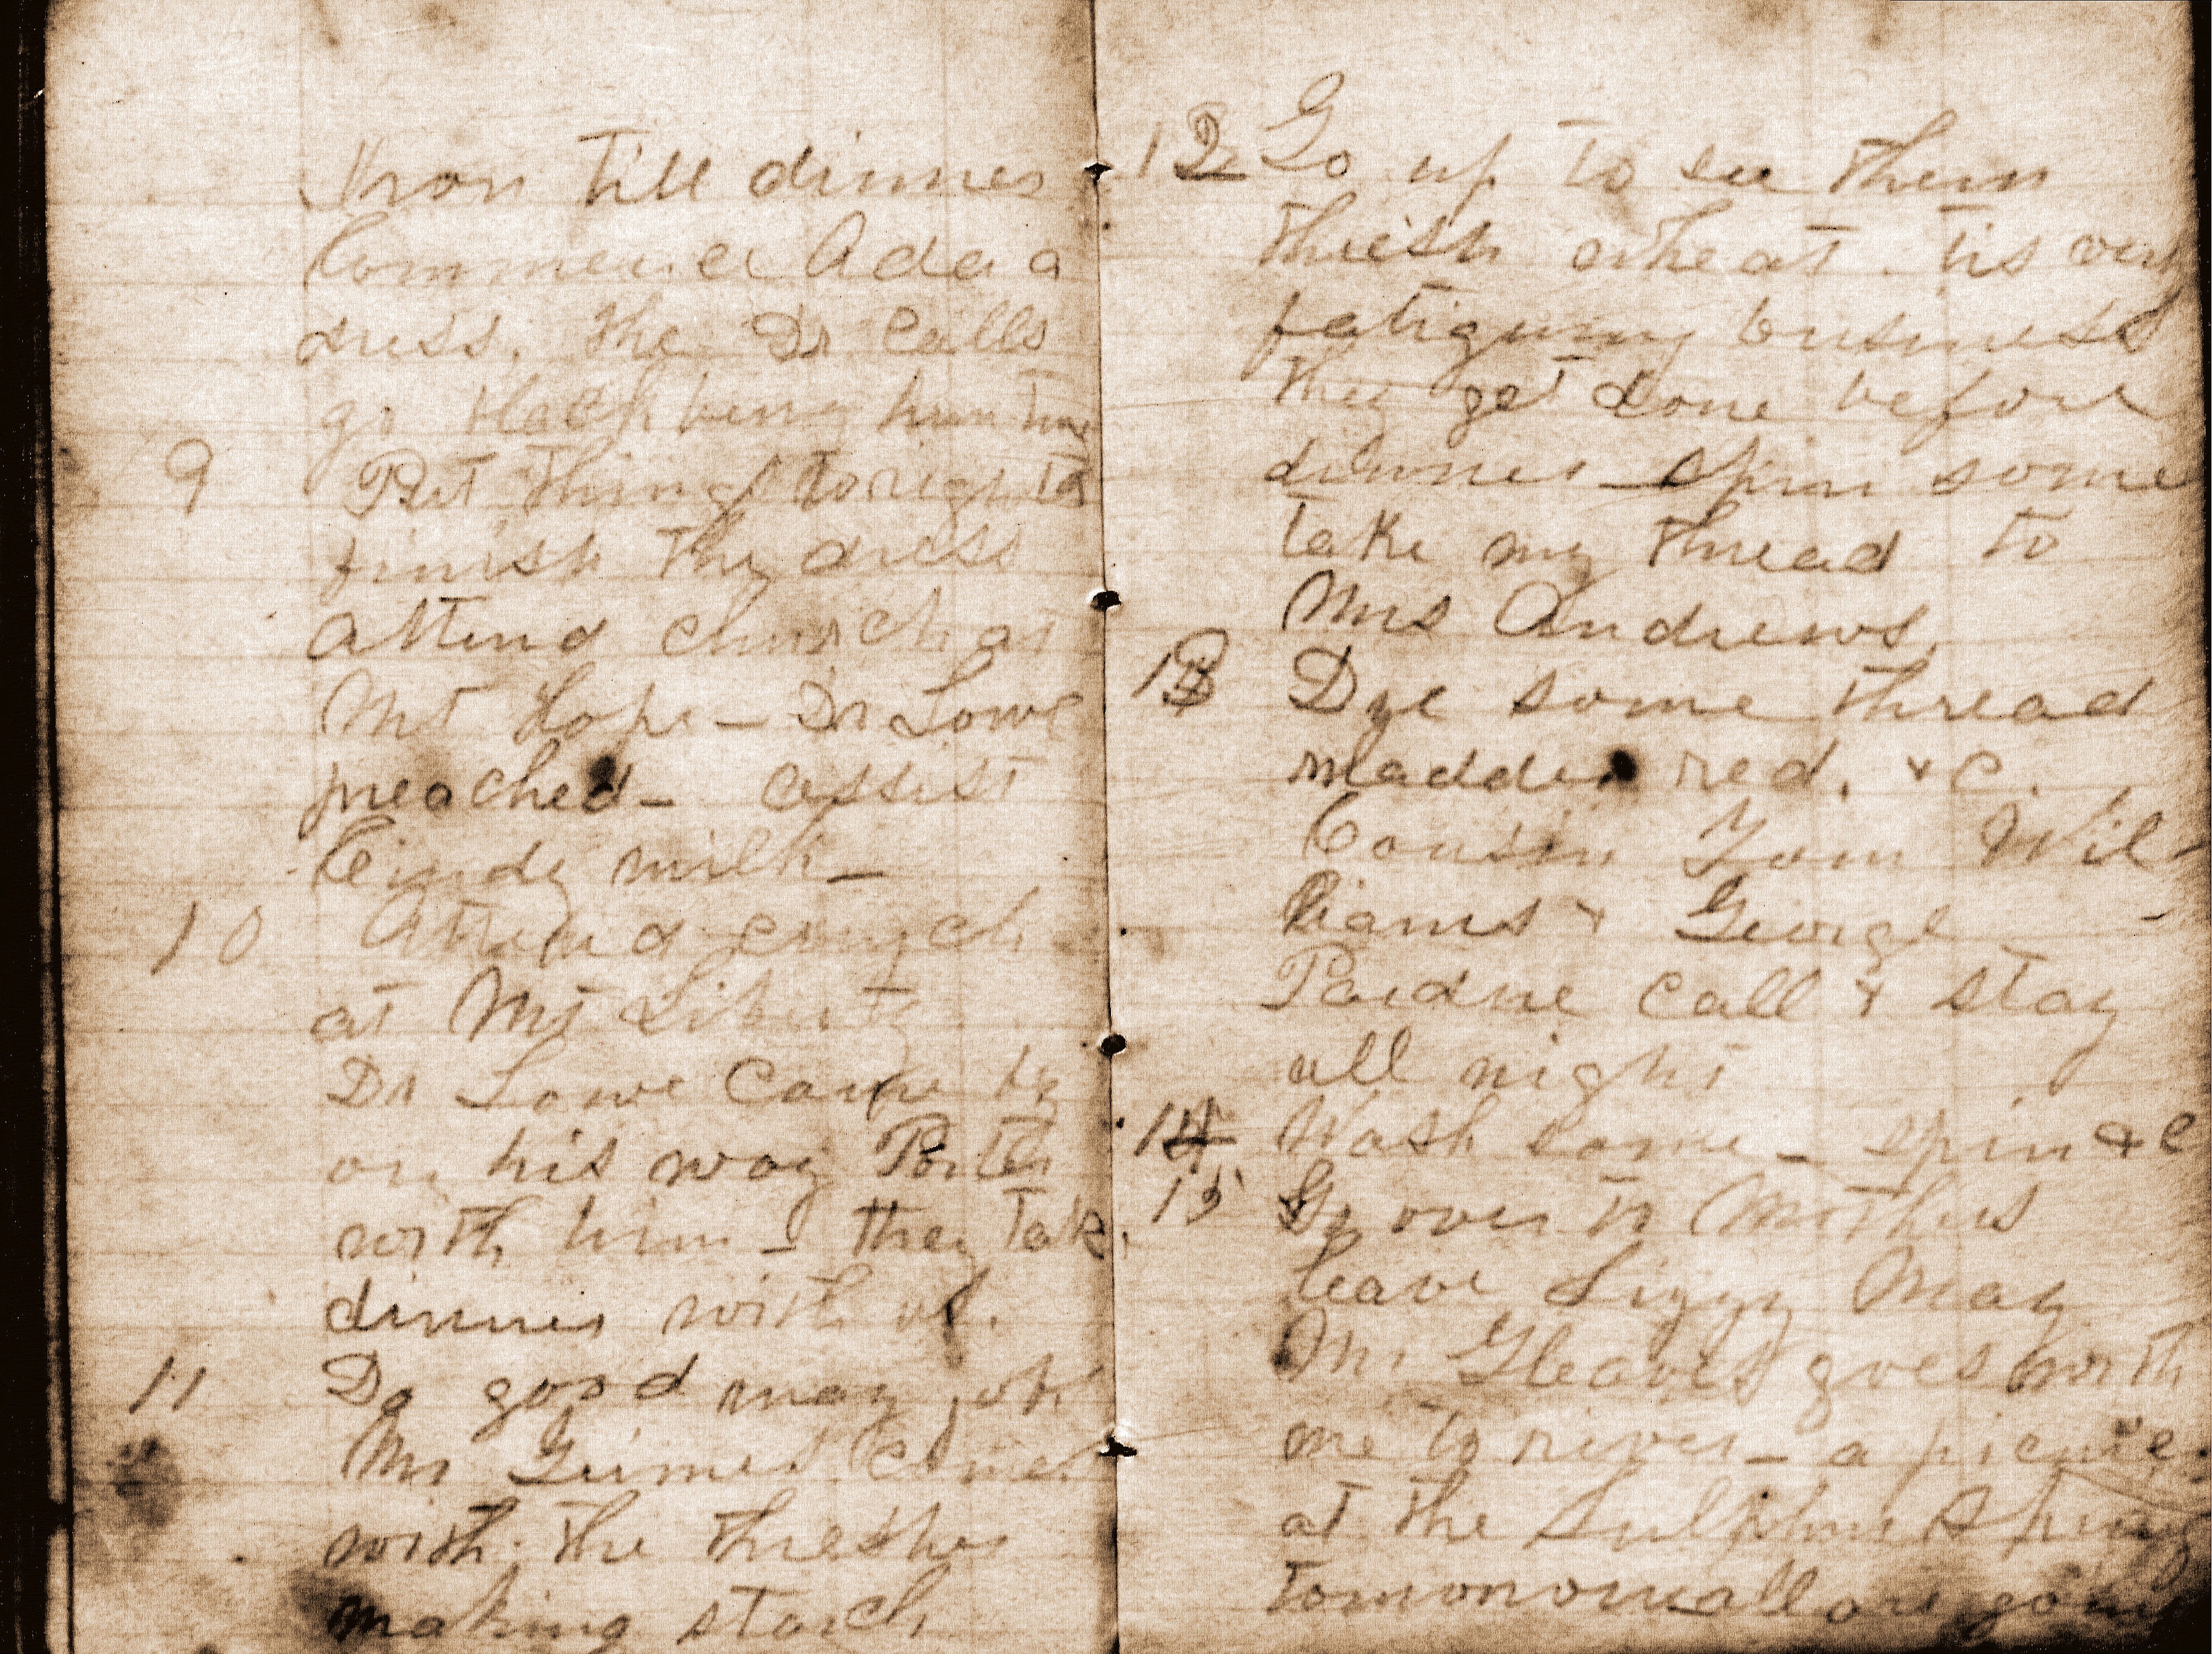 Iron till dinner
Commence Ada a
dress. The Dr Calls
go
9 Put things to rights
finish the dress
attend church at
Mt Hope - Dr Lowe
preached - assist
Cindy milk -
10 Attend church
at Mt Liberty
Dr Lowe Came by
on his way Porter
with him - they take
dinner with us.
11 Do good many jobs
Mr Grimes Comes
with the thresher
making starch
12 Go up to see them
thresh wheat. tis very
fatiguing business
they get done before
dinner - spin some
take my thread to
Mrs Andrews
13 Dye some thread
madder red. &c.
Cousin Tom Wil-
liams & George
Pardue Call & stay
all night
14 Wash some - spin &c
15 Go over to Mothers
leave Lizzy May
Mr Gleaves goes with
me to river - a picnic
at the Sulphur Spring
tomorrow all are going